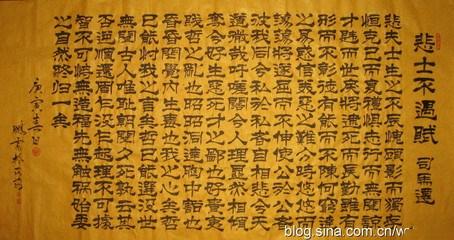 悲士不遇賦 司馬遷
悲夫士生之不辰愧顧影而獨存
恒克己而復禮懼志行而無聞諒
才韙而世戾將逮死而長勤雖有
形而不彰徒有能而不陳何窮達
之易惑信美惡之難分時悠悠而
蕩蕩將遂屈而不伸使公於公者
彼我同兮私於私者自相悲兮天
道微哉吁嗟闊兮人理顯然相傾
奪兮好生惡死才之鄙也好貴夷
賤哲之亂也炤炤洞達胸中豁也
昏昏罔覺內生毒也我之心矣哲
已能忖我之言矣哲已能選没世
無聞古人唯耻朝聞夕死孰云其
否逆順還周乍没乍起理不可據
智不可恃無造福先無觸禍始委
之自然終歸一矣
庚寅
blog.sina.com.cn/w